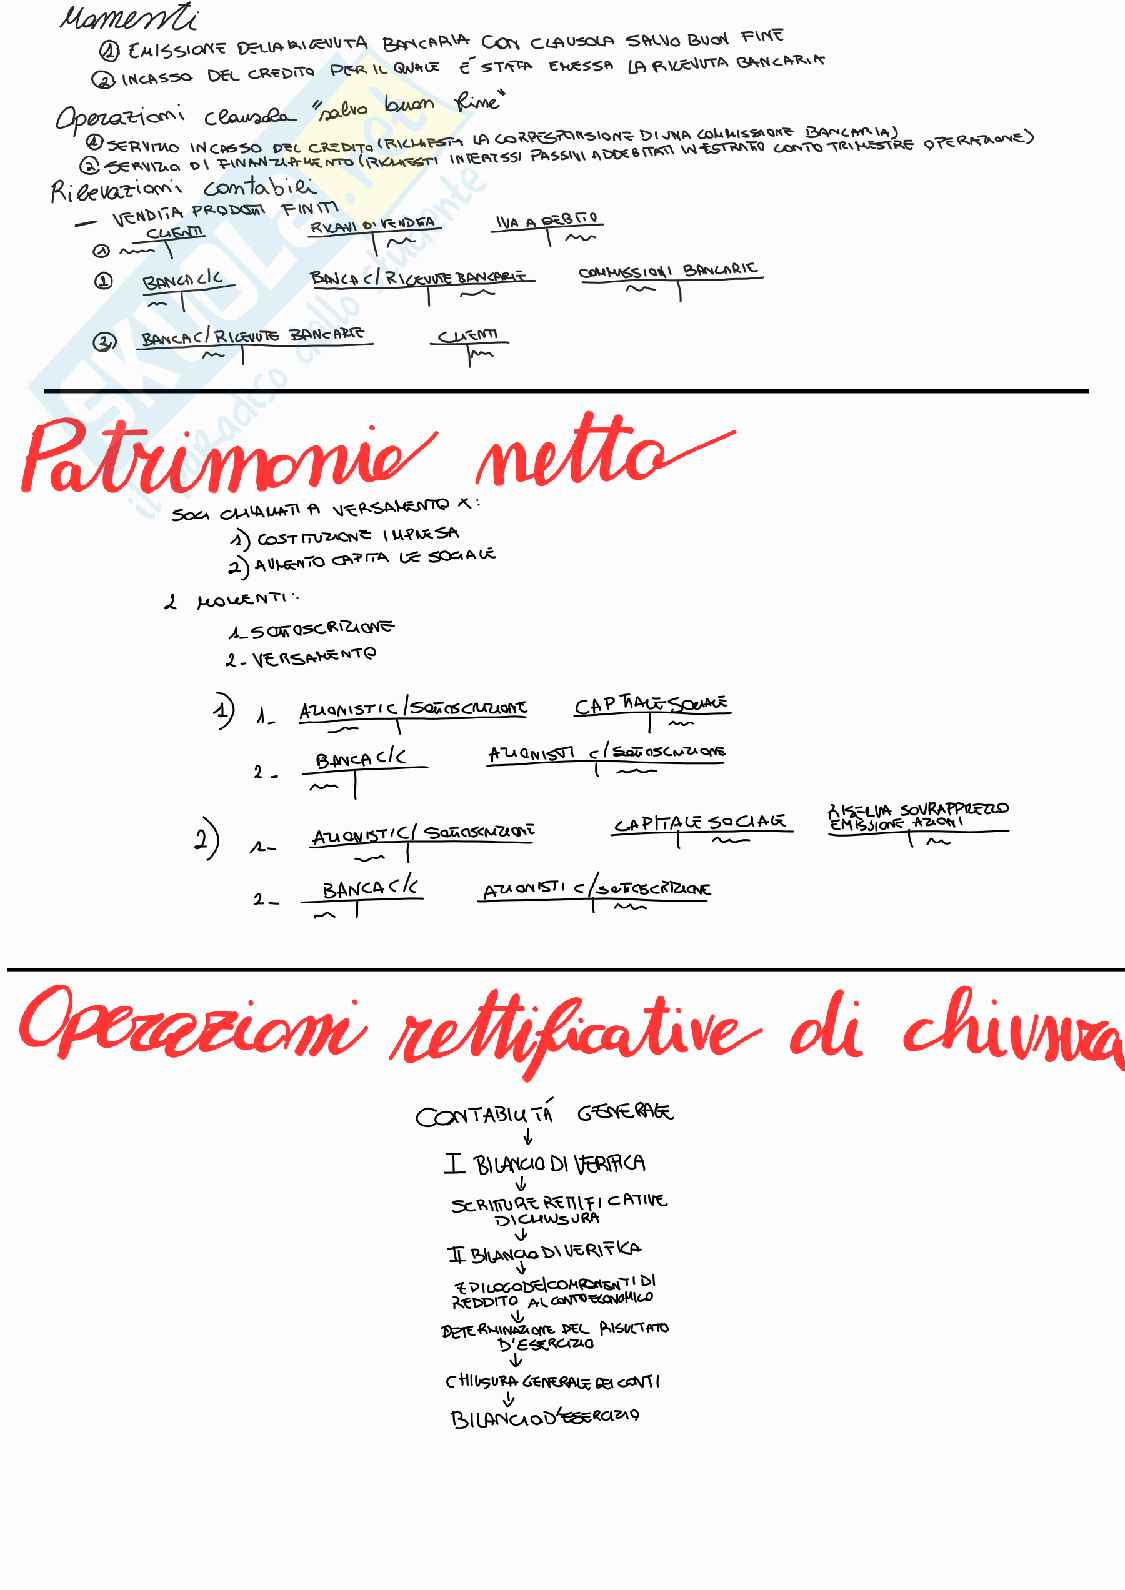 Momenti
① EMISSIONE DELLA RICEVUTA BANCARIA CON CLAUSOLA SALVO BUON FINE
② INCASSO DEL CREDITO PER IL QUALE È STATA EMESSA LA RICEVUTA BANCARIA
Operazioni clausola "salvo buon fine"
① SERVIZIO INCASSO DEL CREDITO (RICHIESTA LA CORRESPONSIONE DI UNA COMMISSIONE BANCARIA)
② SERVIZIO DI FINANZIAMENTO (RICHIESTI INTERESSI PASSIVI ADDEBITATI IN ESTRATO CONTO TRIMESTRE OPERAZIONE)
Rilevazioni contabili
— VENDITA PRODOTTI FINITI
① CLIENTI RICAVI DI VENDITA IVA A DEBITO
② BANCA C/C BANCA C/RICEVUTE BANCARIE COMMISSIONI BANCARIE
③ BANCA C/RICEVUTE BANCARIE CLIENTI
Patrimonio netto
SOCI CHIAMATI A VERSAMENTO X:
1) COSTITUZIONE IMPRESA
2) AUMENTO CAPITALE SOCIALE
2 MOMENTI:
1- SOTTOSCRIZIONE
2- VERSAMENTO
1) 1- AZIONISTI C/SOTTOSCRIZIONE CAPITALE SOCIALE
2- BANCA C/C AZIONISTI C/SOTTOSCRIZIONE
2) 1- AZIONISTI C/SOTTOSCRIZIONE CAPITALE SOCIALE RISERVA SOVRAPPREZZO
EMISSIONE AZIONI
2- BANCA C/C AZIONISTI C/SOTTOSCRIZIONE
Operazioni rettificative di chiusura
CONTABILITÁ GENERALE
↓
I BILANCIO DI VERIFICA
↓
SCRITTURE RETTIFICATIVE
DI CHIUSURA
↓
II BILANCIO DI VERIFICA
↓
EPILOGO DEI COMPONENTI DI
REDDITO AL CONTO ECONOMICO
↓
DETERMINAZIONE DEL RISULTATO
D'ESERCIZIO
↓
CHIUSURA GENERALE DEI CONTI
↓
BILANCIO D'ESERCIZIO
SKUOLA.net
il paradiso dello studente